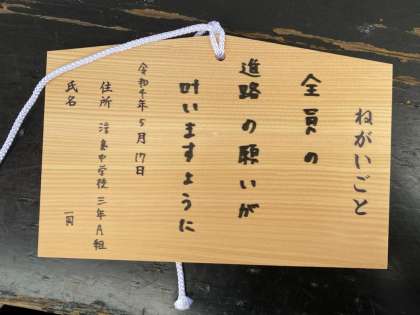 ねがいごと
全員の
進路の願いが
叶いますように
令和4年5月17日
住所 津島中学校 三年A組
氏名 一同